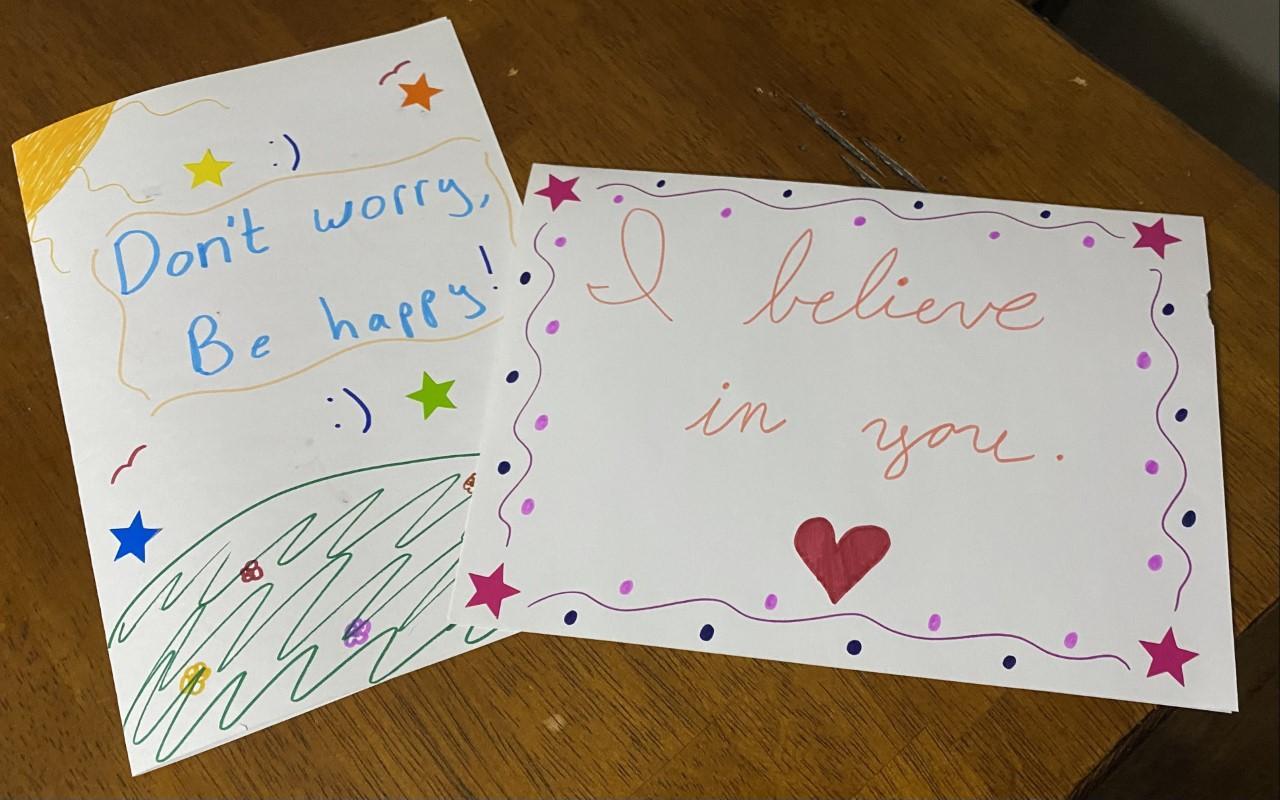 :)
Don't worry,
Be happy!
:)
I believe
in you.